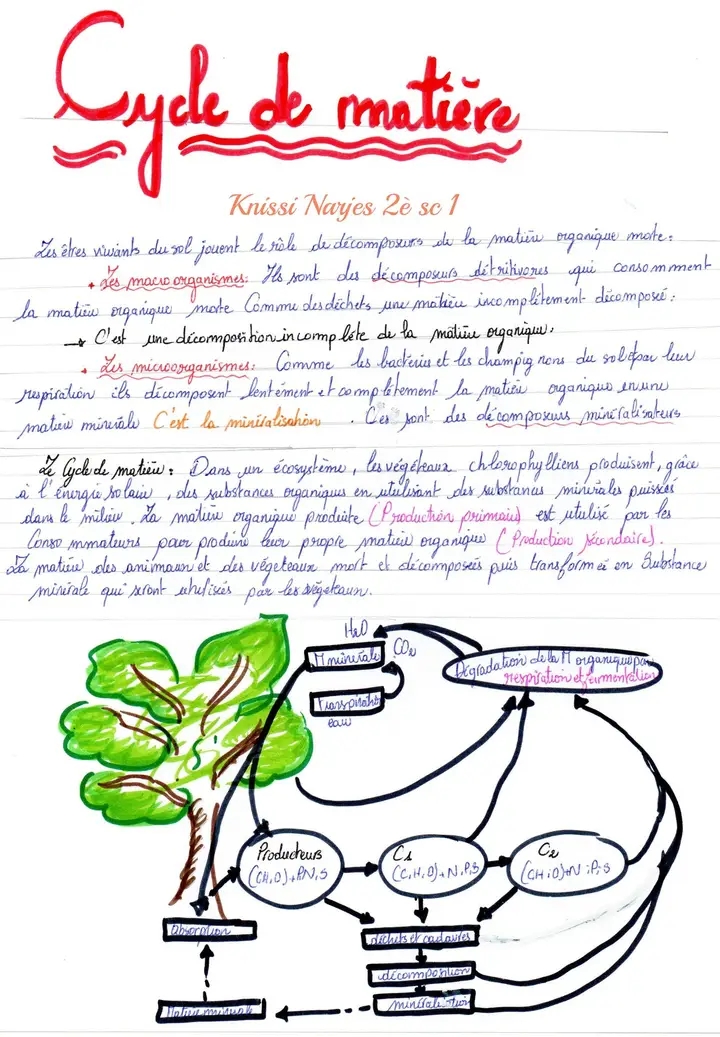 Cycle de matière
Knissi Narjes 2è sc 1
Les êtres vivants du sol jouent le rôle de décomposeurs de la matière organique morte:
• Les macroorganismes: Ils sont des décomposeurs détritivores qui consomment
la matière organique morte Comme des déchets une matière incomplètement décomposé:
→ C'est une décomposition incomplète de la matière organique.
• Les microorganismes: Comme les bactéries et les champignons du sol par leur
respiration ils décomposent lentement et complètement la matière organique en une
matière minérale C'est la minéralisation. Ces sont des décomposeurs minéralisateurs
Le Cycle de matière: Dans un écosystème, les végéteaux chlorophylliens produisent, grâce
à l'énergie solaire, des substances organiques en utulisant des substances minérales puisées
dans le milieu. La matière organique produite (Production primaire) est utulisé par les
Consommateurs pour produire leur propre matière organique (Production sécondaire).
La matière des animaux et des végeteaux mort et décomposées puis transformée en Substance
minérale qui seront utulisées par les végeteaux.
H2O
CO2
M minérale
Dégradation de la M organique par
respiration et fermentation
Transpiration
eau
Producteurs
(CH,O)+P,N,S
C1
(C,H,O)+N,P,S
C2
(CH;O)+N;P;S
absorption
déchets et cadavres
décomposition
minéralisation
Matière minérale